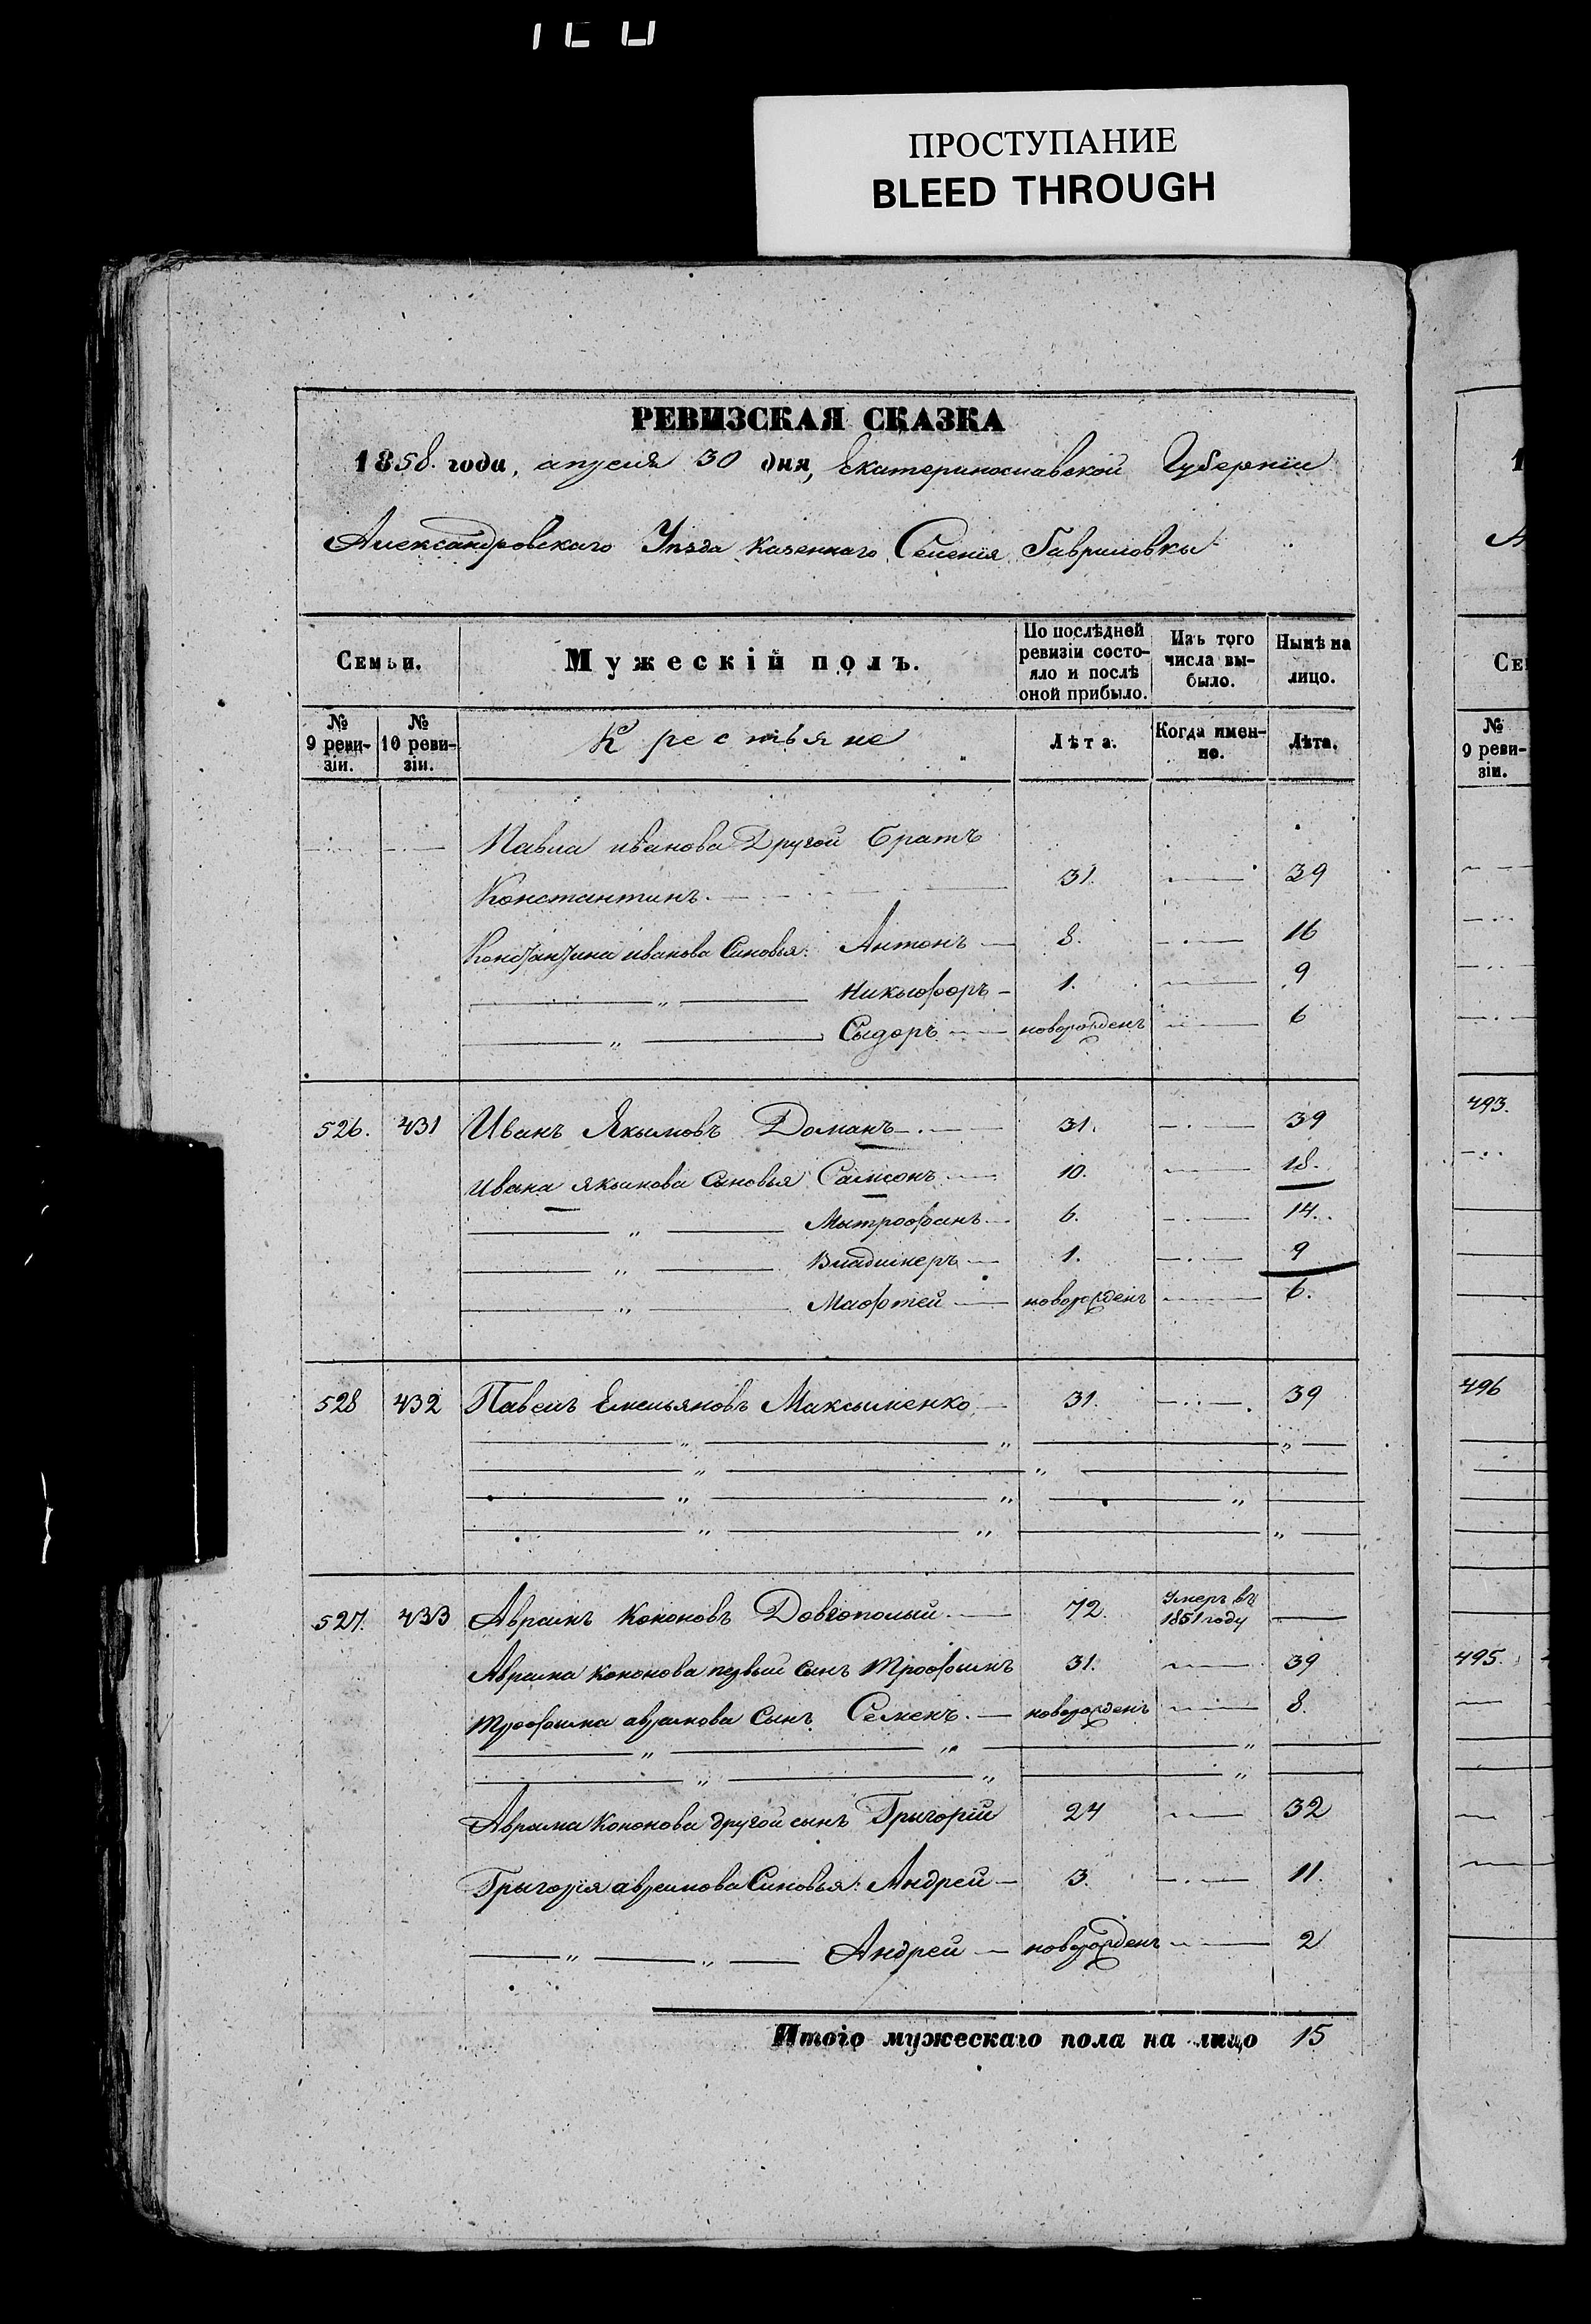 ПРОСТУПАНИЕ
BLEED THROUGH
РЕВИЗСКАЯ СКАЗКА
1858. года, апреля 30 дня, Екатеринославской Губернии
Александровскаго Уѣзда казеннаго Селения Гавриловки
Семьи. Мужескій полъ. По послѣдней ревизіи состояло и послѣ оной прибыло. Изъ того числа выбыло. Нынѣ на лицо.
№ 9 ревизіи. № 10 ревизіи. Крестьяне Лѣта. Когда именно. Лѣта.
Павла иванова Другой братъ
Константинъ. 31. 39
Константина иванова Синовья: Антонъ 8. 16
" Никыфоръ 1. 9
" Сыдоръ новорожденъ 6
526. 431 Иванъ Якымовъ Доманъ 31. 39
Ивана якымова Сыновья Самсонъ 10. 18.
" Мытрофанъ 6. 14.
" Владимеръ 1. 9
" Мафтей новорожденъ 6.
528 432 Павелъ Емельяновъ Максыменко 31. 39
527. 433 Аврамъ Кононовъ Довгополый 72. Умеръ въ 1851 году
Аврама Кононова первый сынъ Трофымъ 31. 39
Трофыма аврамова Сынъ Семенъ. новорожденъ 8.
Аврама Кононова другой сынъ Грыгорій 24 32
Грыгорія аврамова Синовья: Андрей 3. 11.
" " Андрей новорожденъ 2
Итого мужескаго пола на лицо 15
СЕ
№ 9 ревизіи.
493.
496
495.